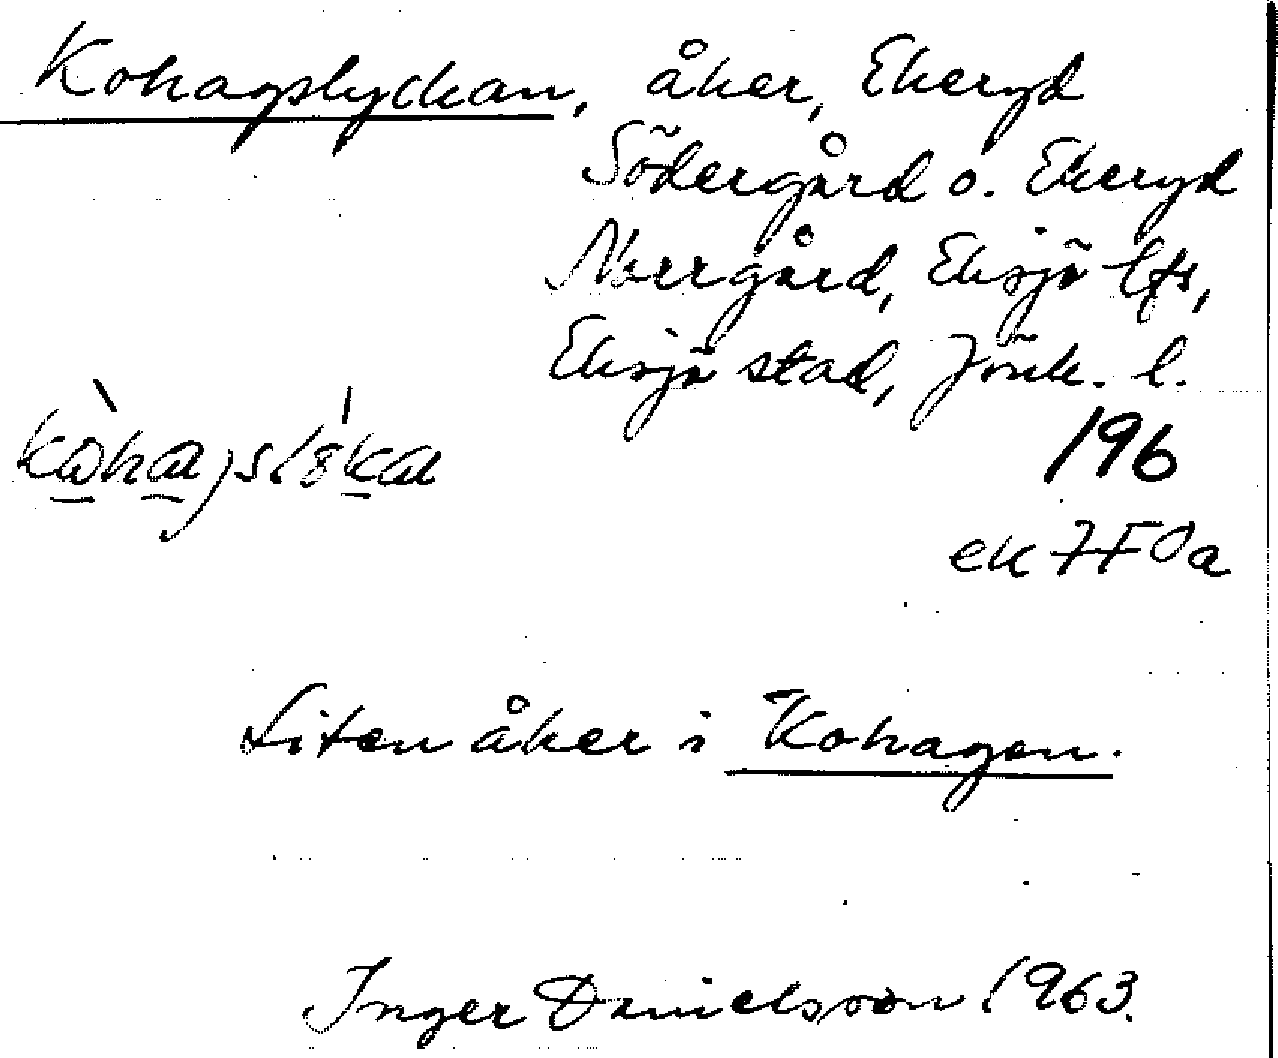 Kohagslyckan, åker, Ekeryd
Södergård o. Ekeryd
Norrgård, Eksjö lfs,
Eksjö stad, Jönk. l.
196
ek 7F0a
Liten åker i Kohagen.
Inger Danielsson 1963.